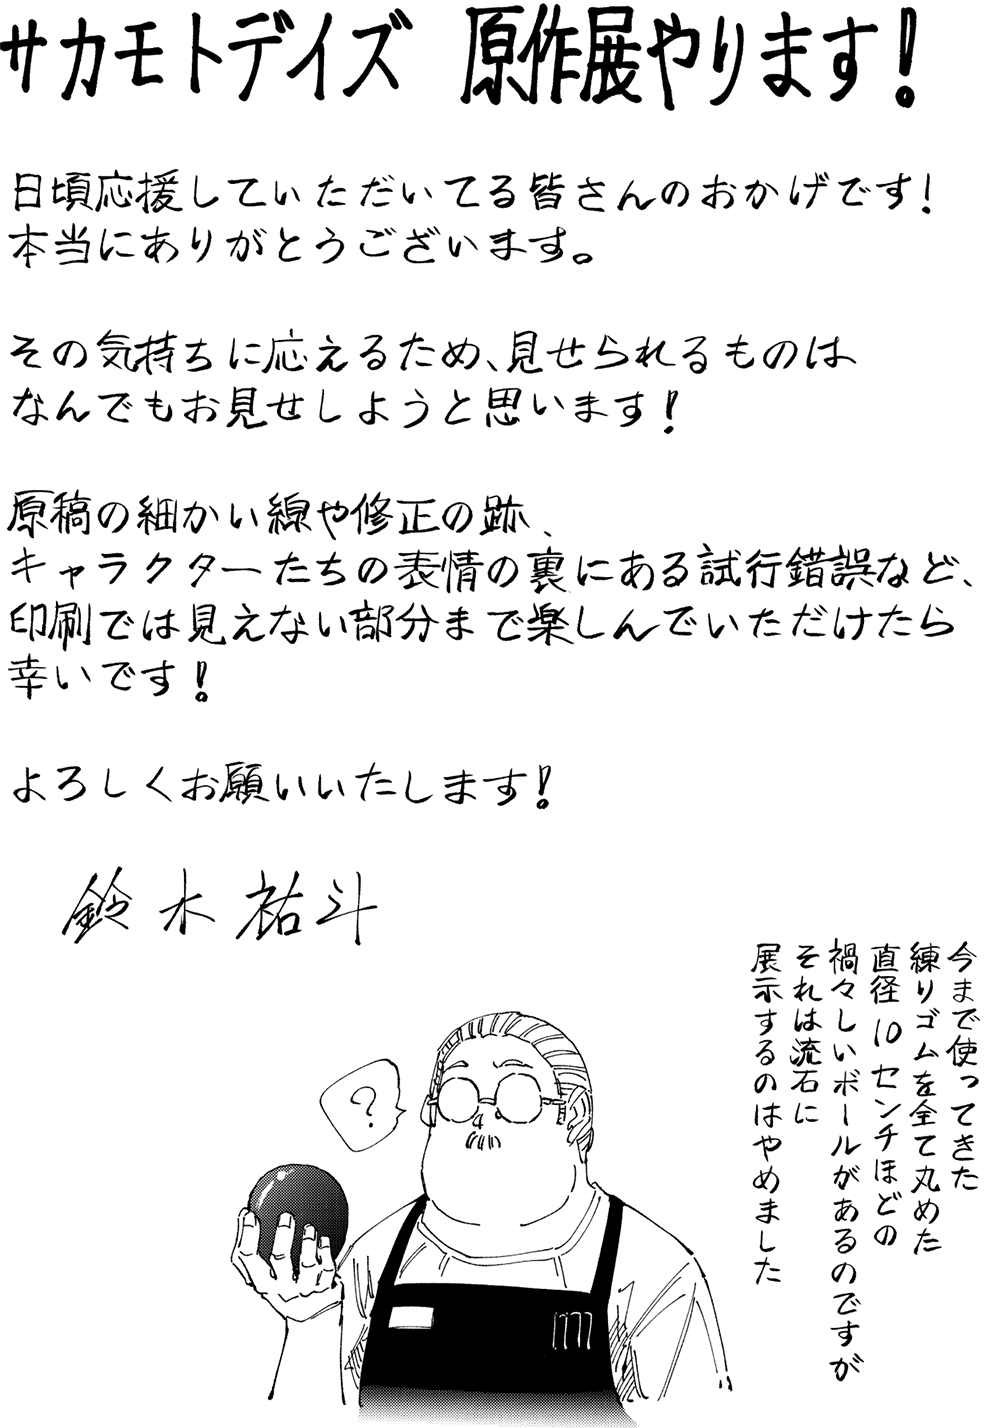 サカモトデイズ 原作展やります!
日頃応援していただいてる皆さんのおかげです!
本当にありがとうございます。
その気持ちに応えるため、見せられるものは
なんでもお見せしようと思います!
原稿の細かい線や修正の跡、
キャラクターたちの表情の裏にある試行錯誤など、
印刷では見えない部分まで楽しんでいただけたら
幸いです!
よろしくお願いいたします!
鈴木祐斗
今まで使ってきた
練りゴムを全て丸めた
直径10センチほどの
禍々しいボールがあるのですが
それは流石に
展示するのはやめました
?